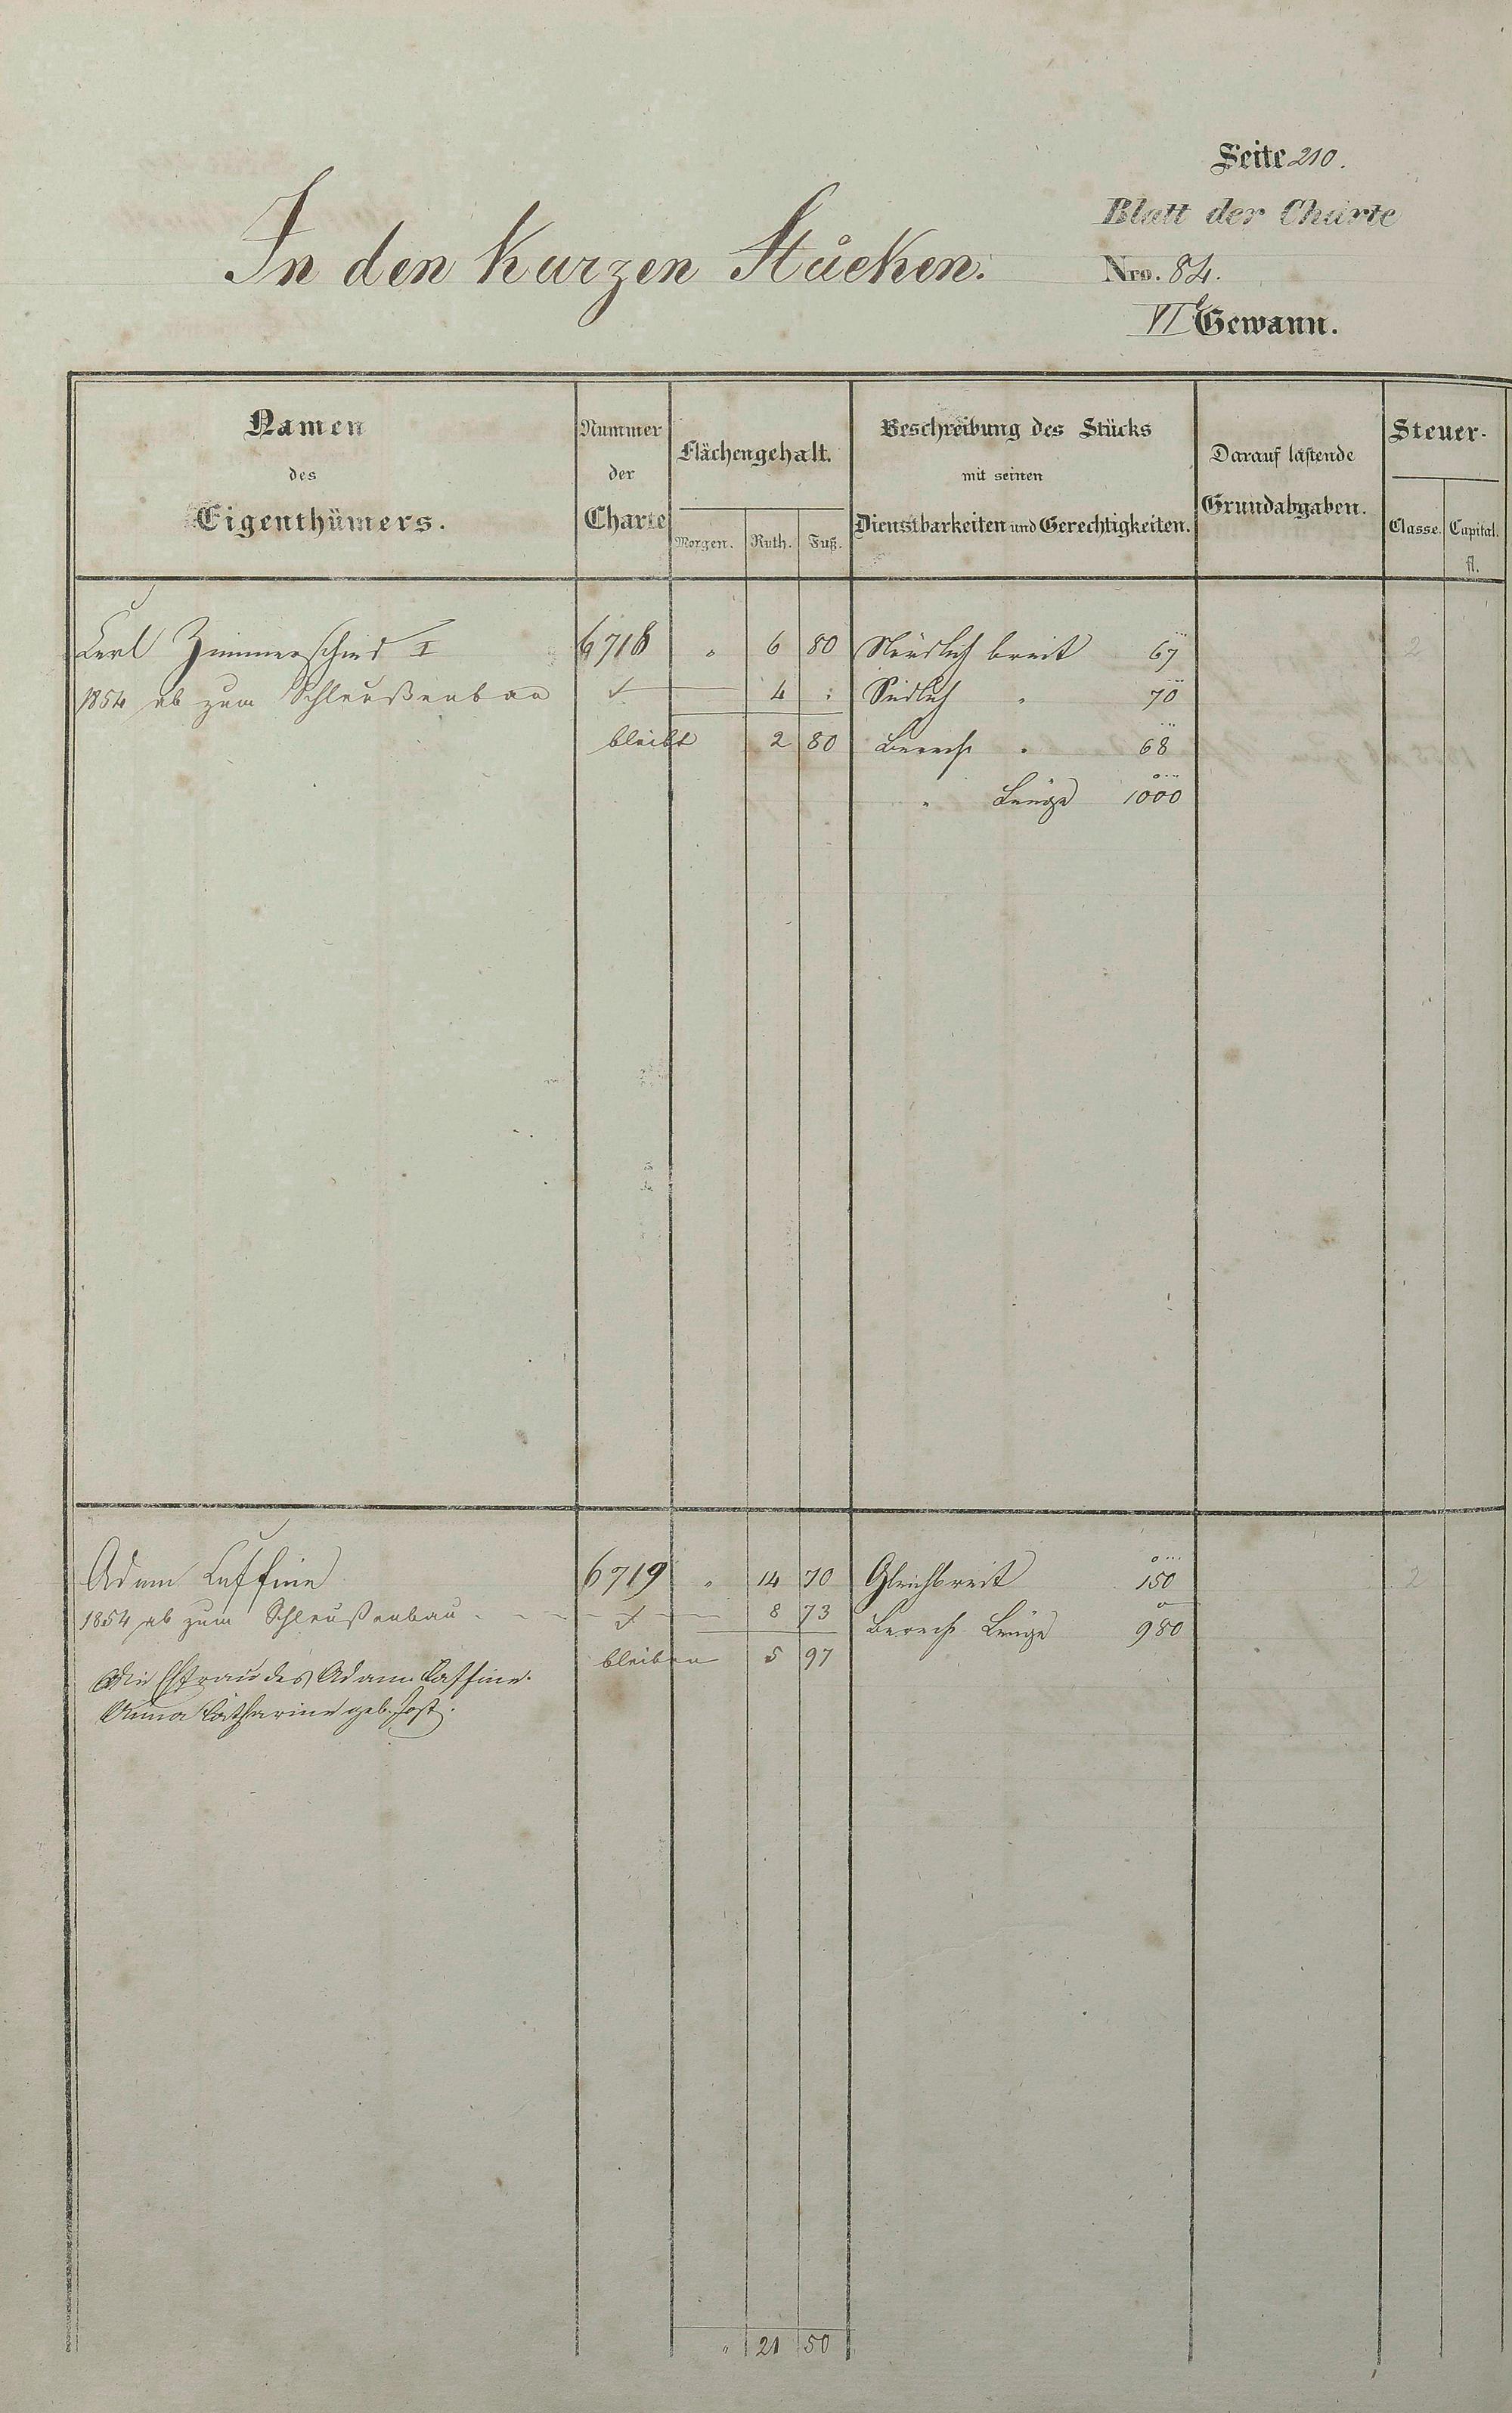 Seite 210.
Blatt der Charte
In den kurzen Stücken.
Nro. 84.
VI Gewann.
Namen
des
Eigenthümers.
Nummer
der
Charte
Flächengehalt.
Morgen. Ruth. Fuß.
Beschreibung des Stücks
mit seinen
Dienstbarkeiten und Gerechtigkeiten.
Darauf lastende
Grundabgaben.
Steuer-
Classe. Capital.
fl.
Carl Zimmerschied I 6718 " 6 80 Nördlich breit 67 2
1854 ab zum Schleußenbau 4 : Südlich " 70
bleibt 2 80 Berech " 68
" Länge 1000
Adam Caffine 6719 " 14 70 Gleichbreit 150 2
1854 ab zum Schleußenbau 8 73 Berech Länge 980
bleiben 5 97
Die Ehfrau des Adam Caffine
Anna Catharine geb. Jost.
" 21 50